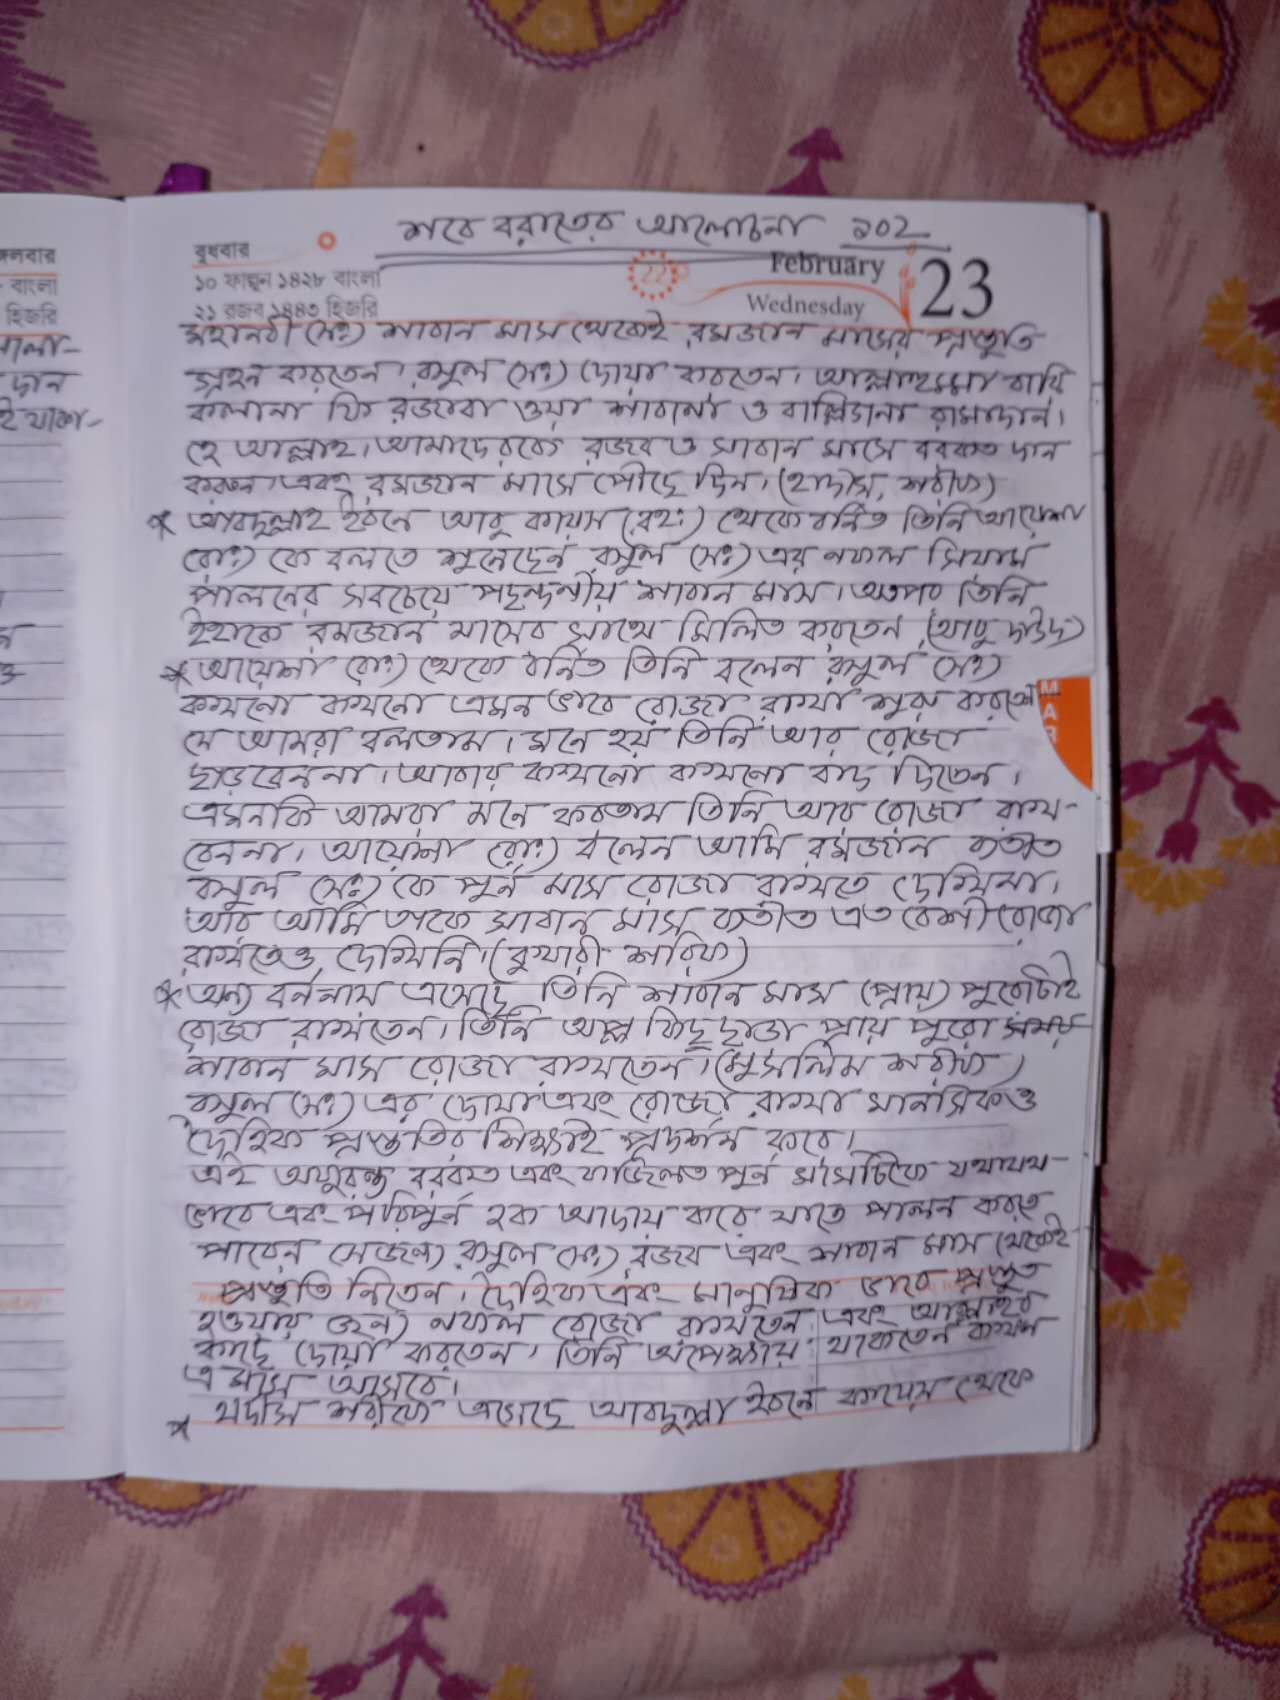 শবে বরাতের আলোচনা ১০২
বুধবার
১০ ফাল্গুন ১৪২৮ বাংলা
২১ রজব ১৪৪৩ হিজরি
22
February
Wednesday
23
মহানবী (সঃ) শাবান মাস থেকেই রমজান মাসের প্রস্তুতি
গ্রহন করতেন। রসুল (সঃ) দোয়া করতেন। আল্লাহুম্মা বারিক
লানা ফি রজাবা ওয়া শাবানা ও বাল্লিগনা রামাদান।
হে আল্লাহ, আমাদেরকে রজব ও সাবান মাসে বরকত দান
করুন এবং রমজান মাসে পৌছে দিন। (হাদীস, শরীফ)
* আবদুল্লাহ ইবনে আবু কায়স (রহঃ) থেকে বর্নিত তিনি আয়েশা
(রাঃ) কে বলতে শুনেছেন রসুল (সঃ) এর নফল সিয়াম
পালনের সবচেয়ে পছন্দনীয় শাবান মাস। অতপর তিনি
ইহাকে রমজান মাসের সাথে মিলিত করতেন (আবু দাউদ)
* আয়েশা (রাঃ) থেকে বর্নিত তিনি বলেন রসুল (সঃ)
কখনো কখনো এমন ভাবে রোজা রাখা শুরু করতেন
যে আমরা বলতাম। মনে হয় তিনি আর রোজা
ছাড়বেননা। আবার কখনো কখনো বাদ দিতেন।
এমনকি আমরা মনে করতাম তিনি আর রোজা রাখ-
বেননা। আয়েশা (রাঃ) বলেন আমি রমজান ব্যতীত
রসুল (সঃ) কে পুর্ন মাস রোজা রাখতে দেখিনা।
আর আমি তাকে সাবান মাস ব্যতীত এত বেশী রোজা
রাখতেও দেখিনি। (বুখারী শরিফ)
* অন্য বর্ননায় এসেছে তিনি শাবান মাস (প্রায়) পুরোটাই
রোজা রাখতেন। তিনি অল্প কিছু ছাড়া প্রায় পুরো সময়
শাবান মাস রোজা রাখতেন। (মুসলিম শরীফ)
রসুল (সঃ) এর দোয়া এবং রোজা রাখা মানসিক ও
দৈহিক প্রস্তুতির শিক্ষাই প্রদর্শন করে।
এই অফুরন্ত বরকত এবং ফজিলত পুর্ন মাসটিকে যথাযথ-
ভাবে এবং পরিপুর্ন হক আদায় করে যাতে পালন করতে
পারেন সেজন্য রসুল (সঃ) রজব এবং শাবান মাস থেকেই
প্রস্তুতি নিতেন। দৈহিক এবং মানুষিক ভাবে প্রস্তুত
হওয়ার জন্য নফল রোজা রাখতেন এবং আল্লাহর
কাছে দোয়া করতেন। তিনি অপেক্ষায় থাকতেন কখন
এ মাস আসবে।
* হাদীস শরীফে এসেছে আবদুল্লা ইবনে কায়েস থেকে